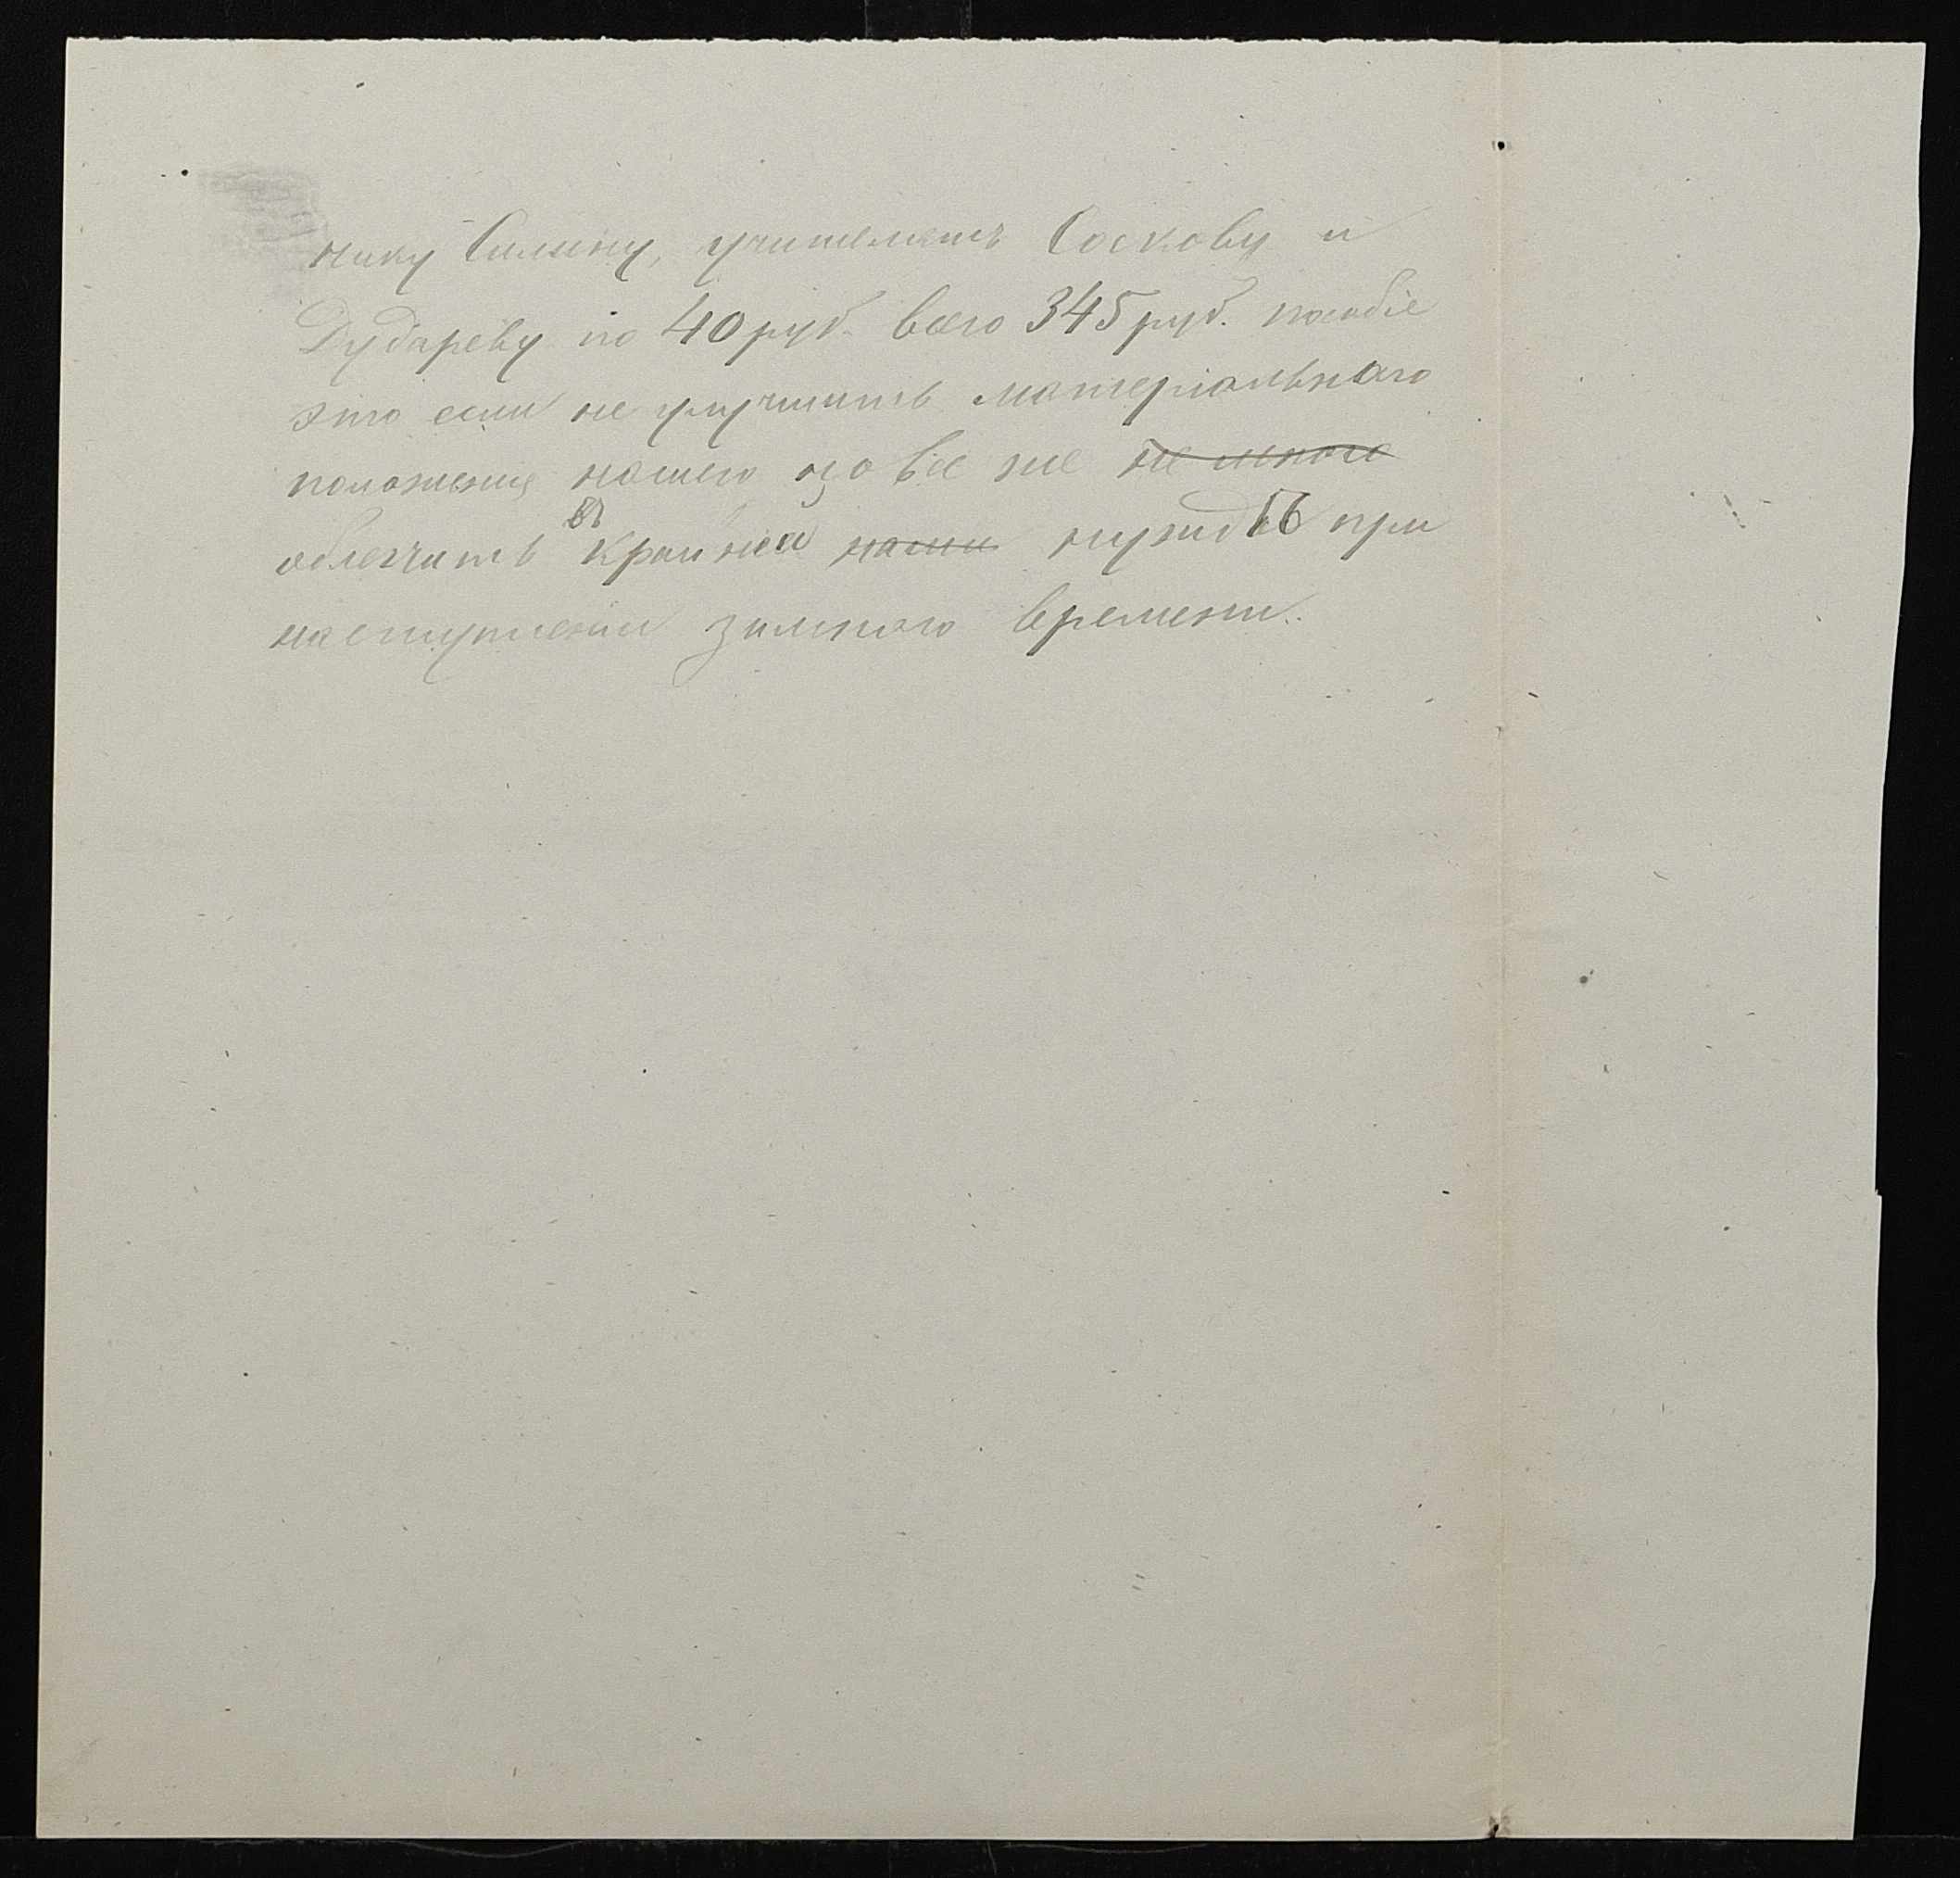 нику Силину, учителямъ Соскову и
Дудареву по 40 руб. всего 345 руб. пособіе
это если не улучшитъ матеріальнаго
положенія нашего но все же не много
облегчитъ въ крайней наши нуждѣ при
наступленіи зимнего времени.